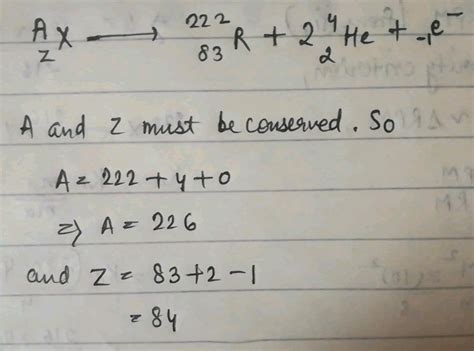 A/Z X ⟶ 222/83 R + 2 4/2 He + -1e⁻
A and Z must be conserved. So
A = 222 + 4 + 0
⇒ A = 226
and Z = 83 + 2 - 1
= 84